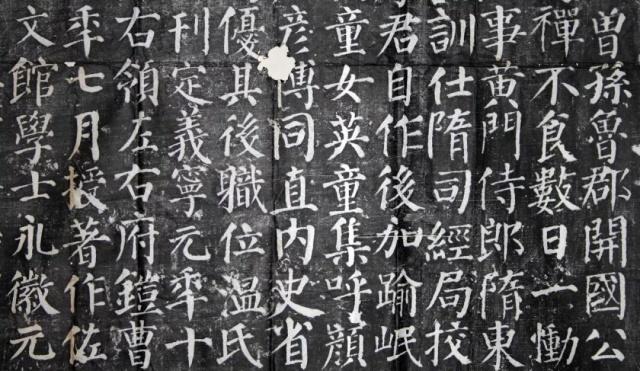 曾孫魯郡開國公
禪不食數日一慟
事黃門侍郎隋東
訓仕隋司經局挍
君自作後加踰岷
童女英童集呼顏
彥博同直內史省
優其後職位温氏
刊定義寧元秊十
右領左右府鎧曹
秊七月授著作佐
文館學士永徽元